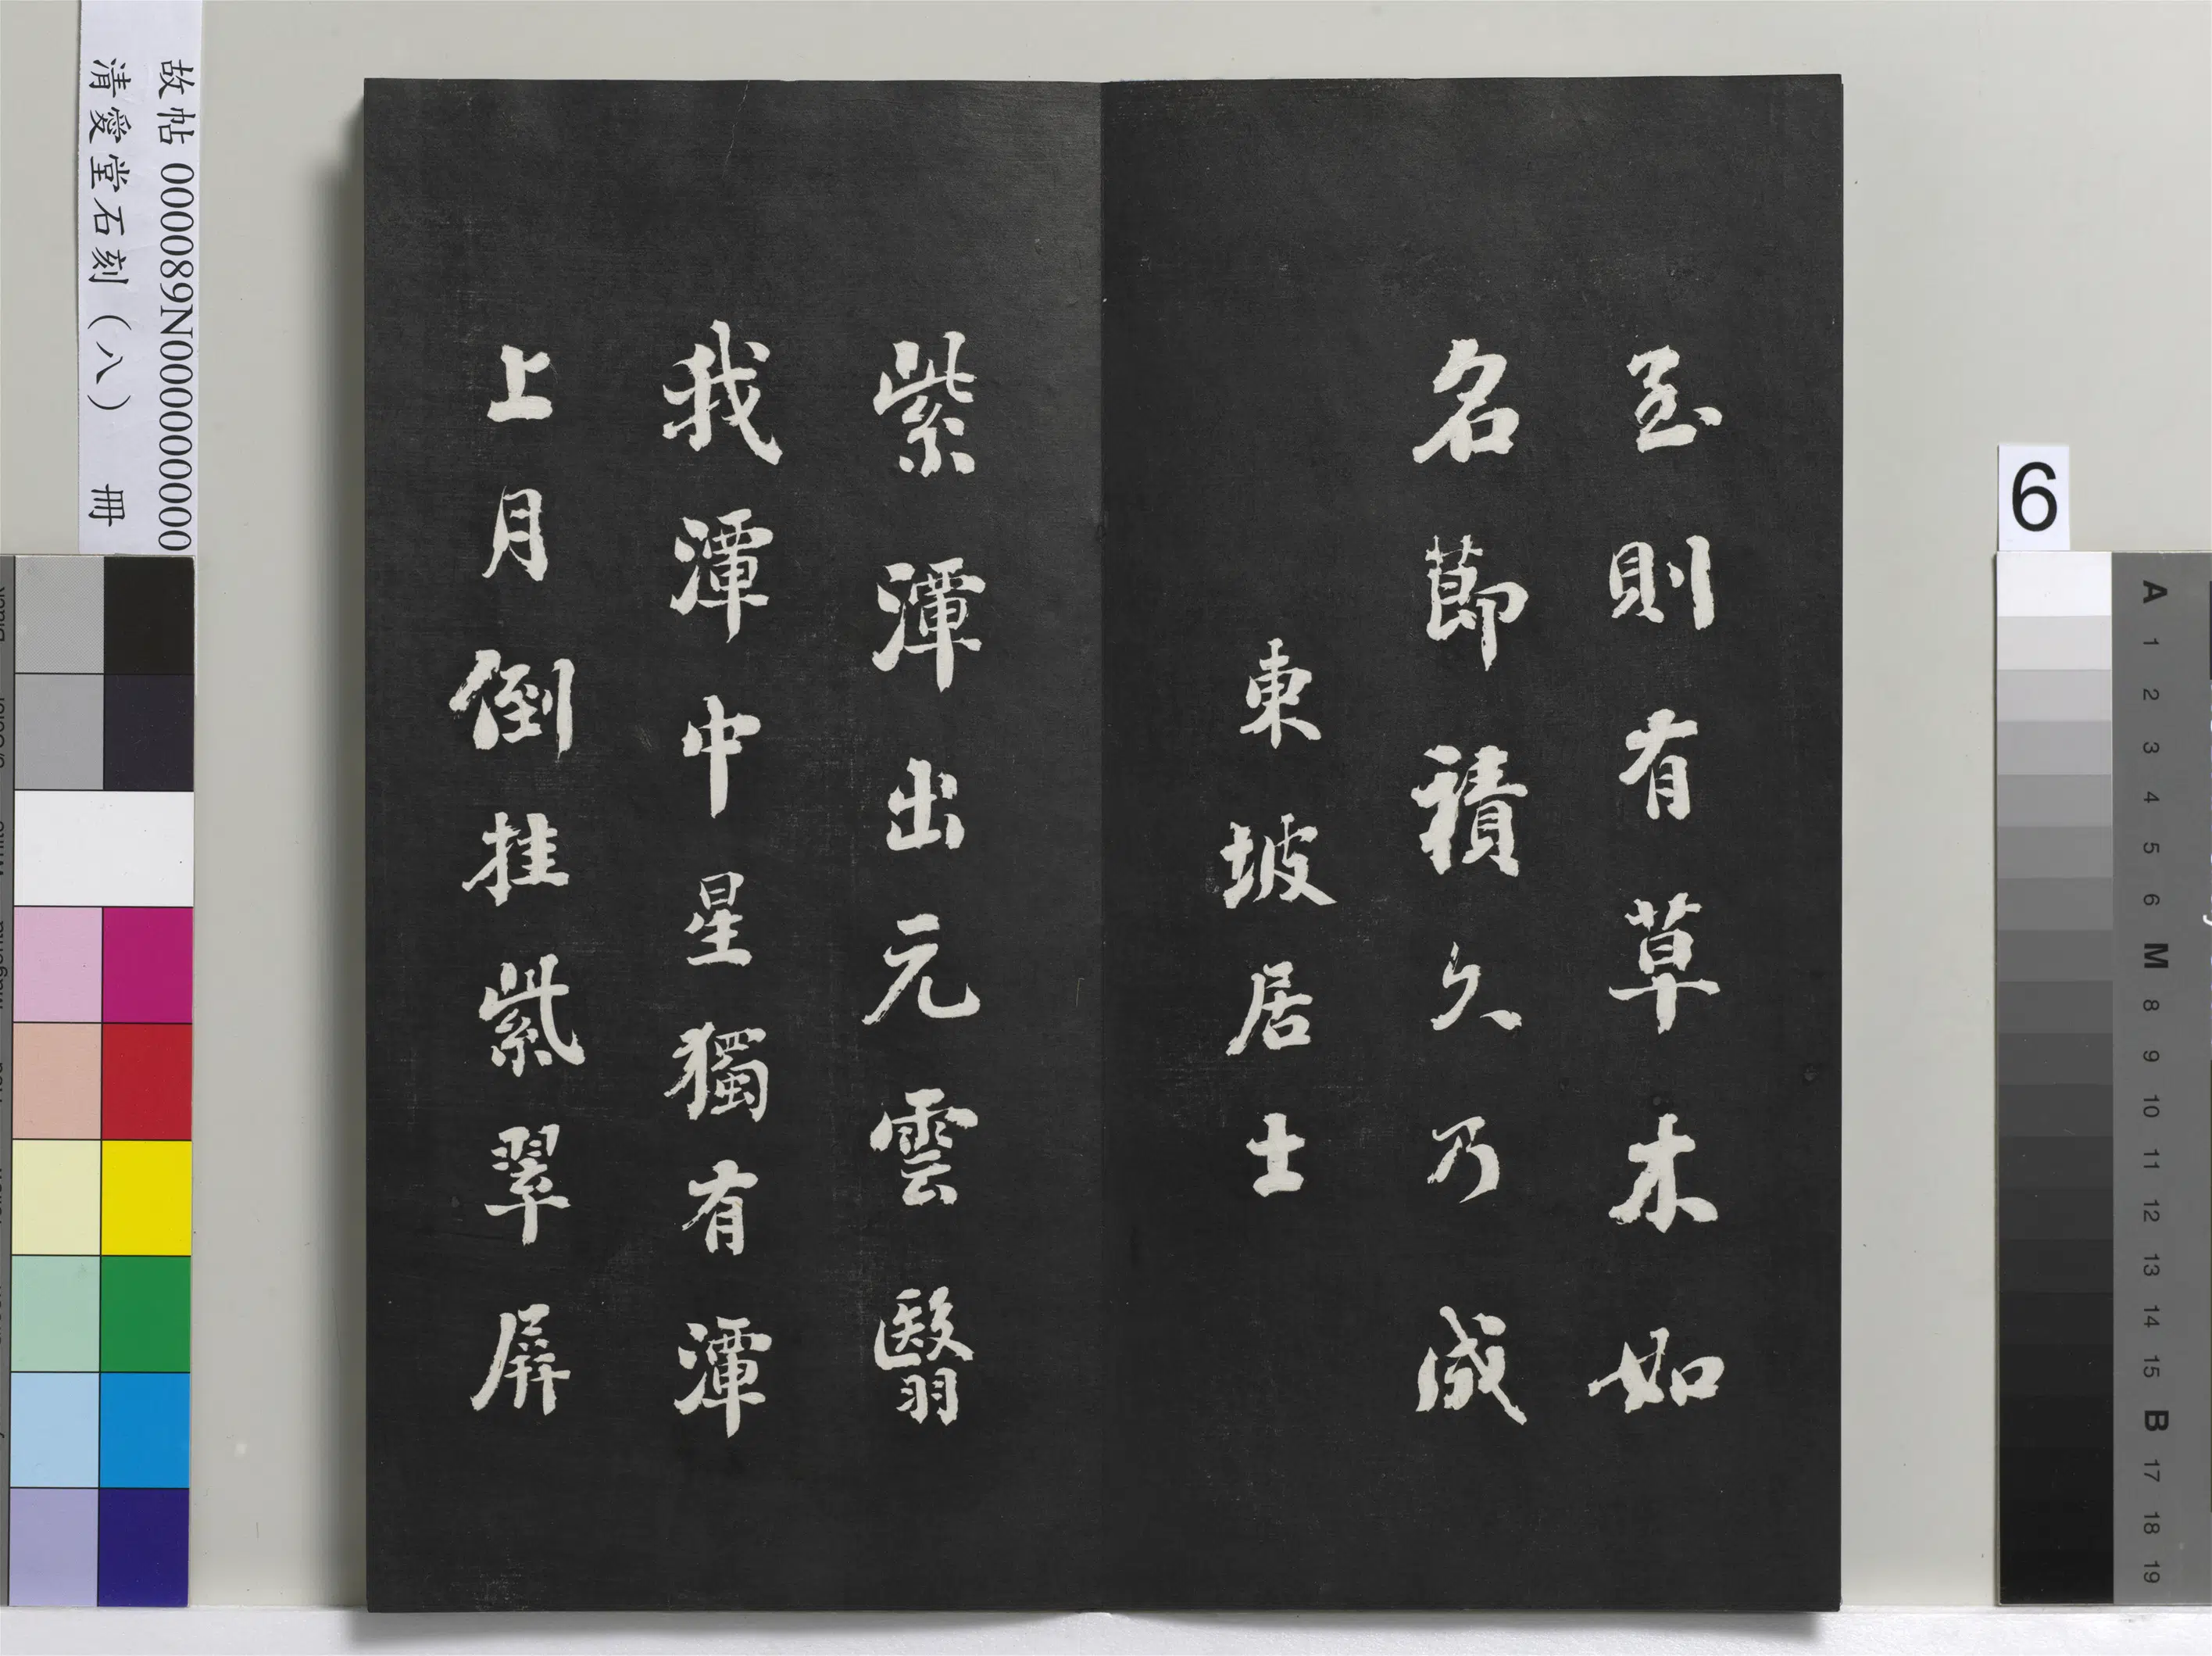 至則有草木如
名節積久乃成
東坡居士
紫潭出元雲翳
我潭中星獨有潭
上月倒挂紫翠屏
故帖 000089N000000000
清愛堂石刻(八) 冊
6
A 1 2 3 4 5 6 M 8 9 10 11 12 13 14 15 B 17 18 19